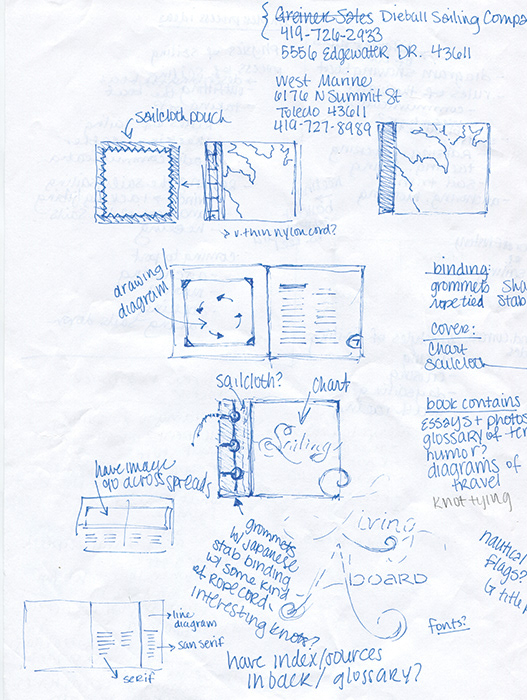 Greiner Sales Dieball Sailing Compa
419-726-2933
5556 Edgewater DR. 43611
West Marine
6176 N Summit St
Toledo 43611
419-727-8989
sailcloth pouch
v. thin nylon cord?
drawing/
diagram
binding:
grommets Sha
rope tied Stab
cover:
chart
sailcloth
sailcloth?
chart
Sailing
book contains
essays + photos
glossary of ter
humor?
diagrams of
travel
knot tying
have image
go across spreads
grommets
w/ Japanese
stab binding
w/ some kind
of rope cord -
interesting knots?
Living
Aboard
nautical
flags?
↳ title,
fonts?
line
diagram
san serif
serif
have index/sources
in back / glossary?